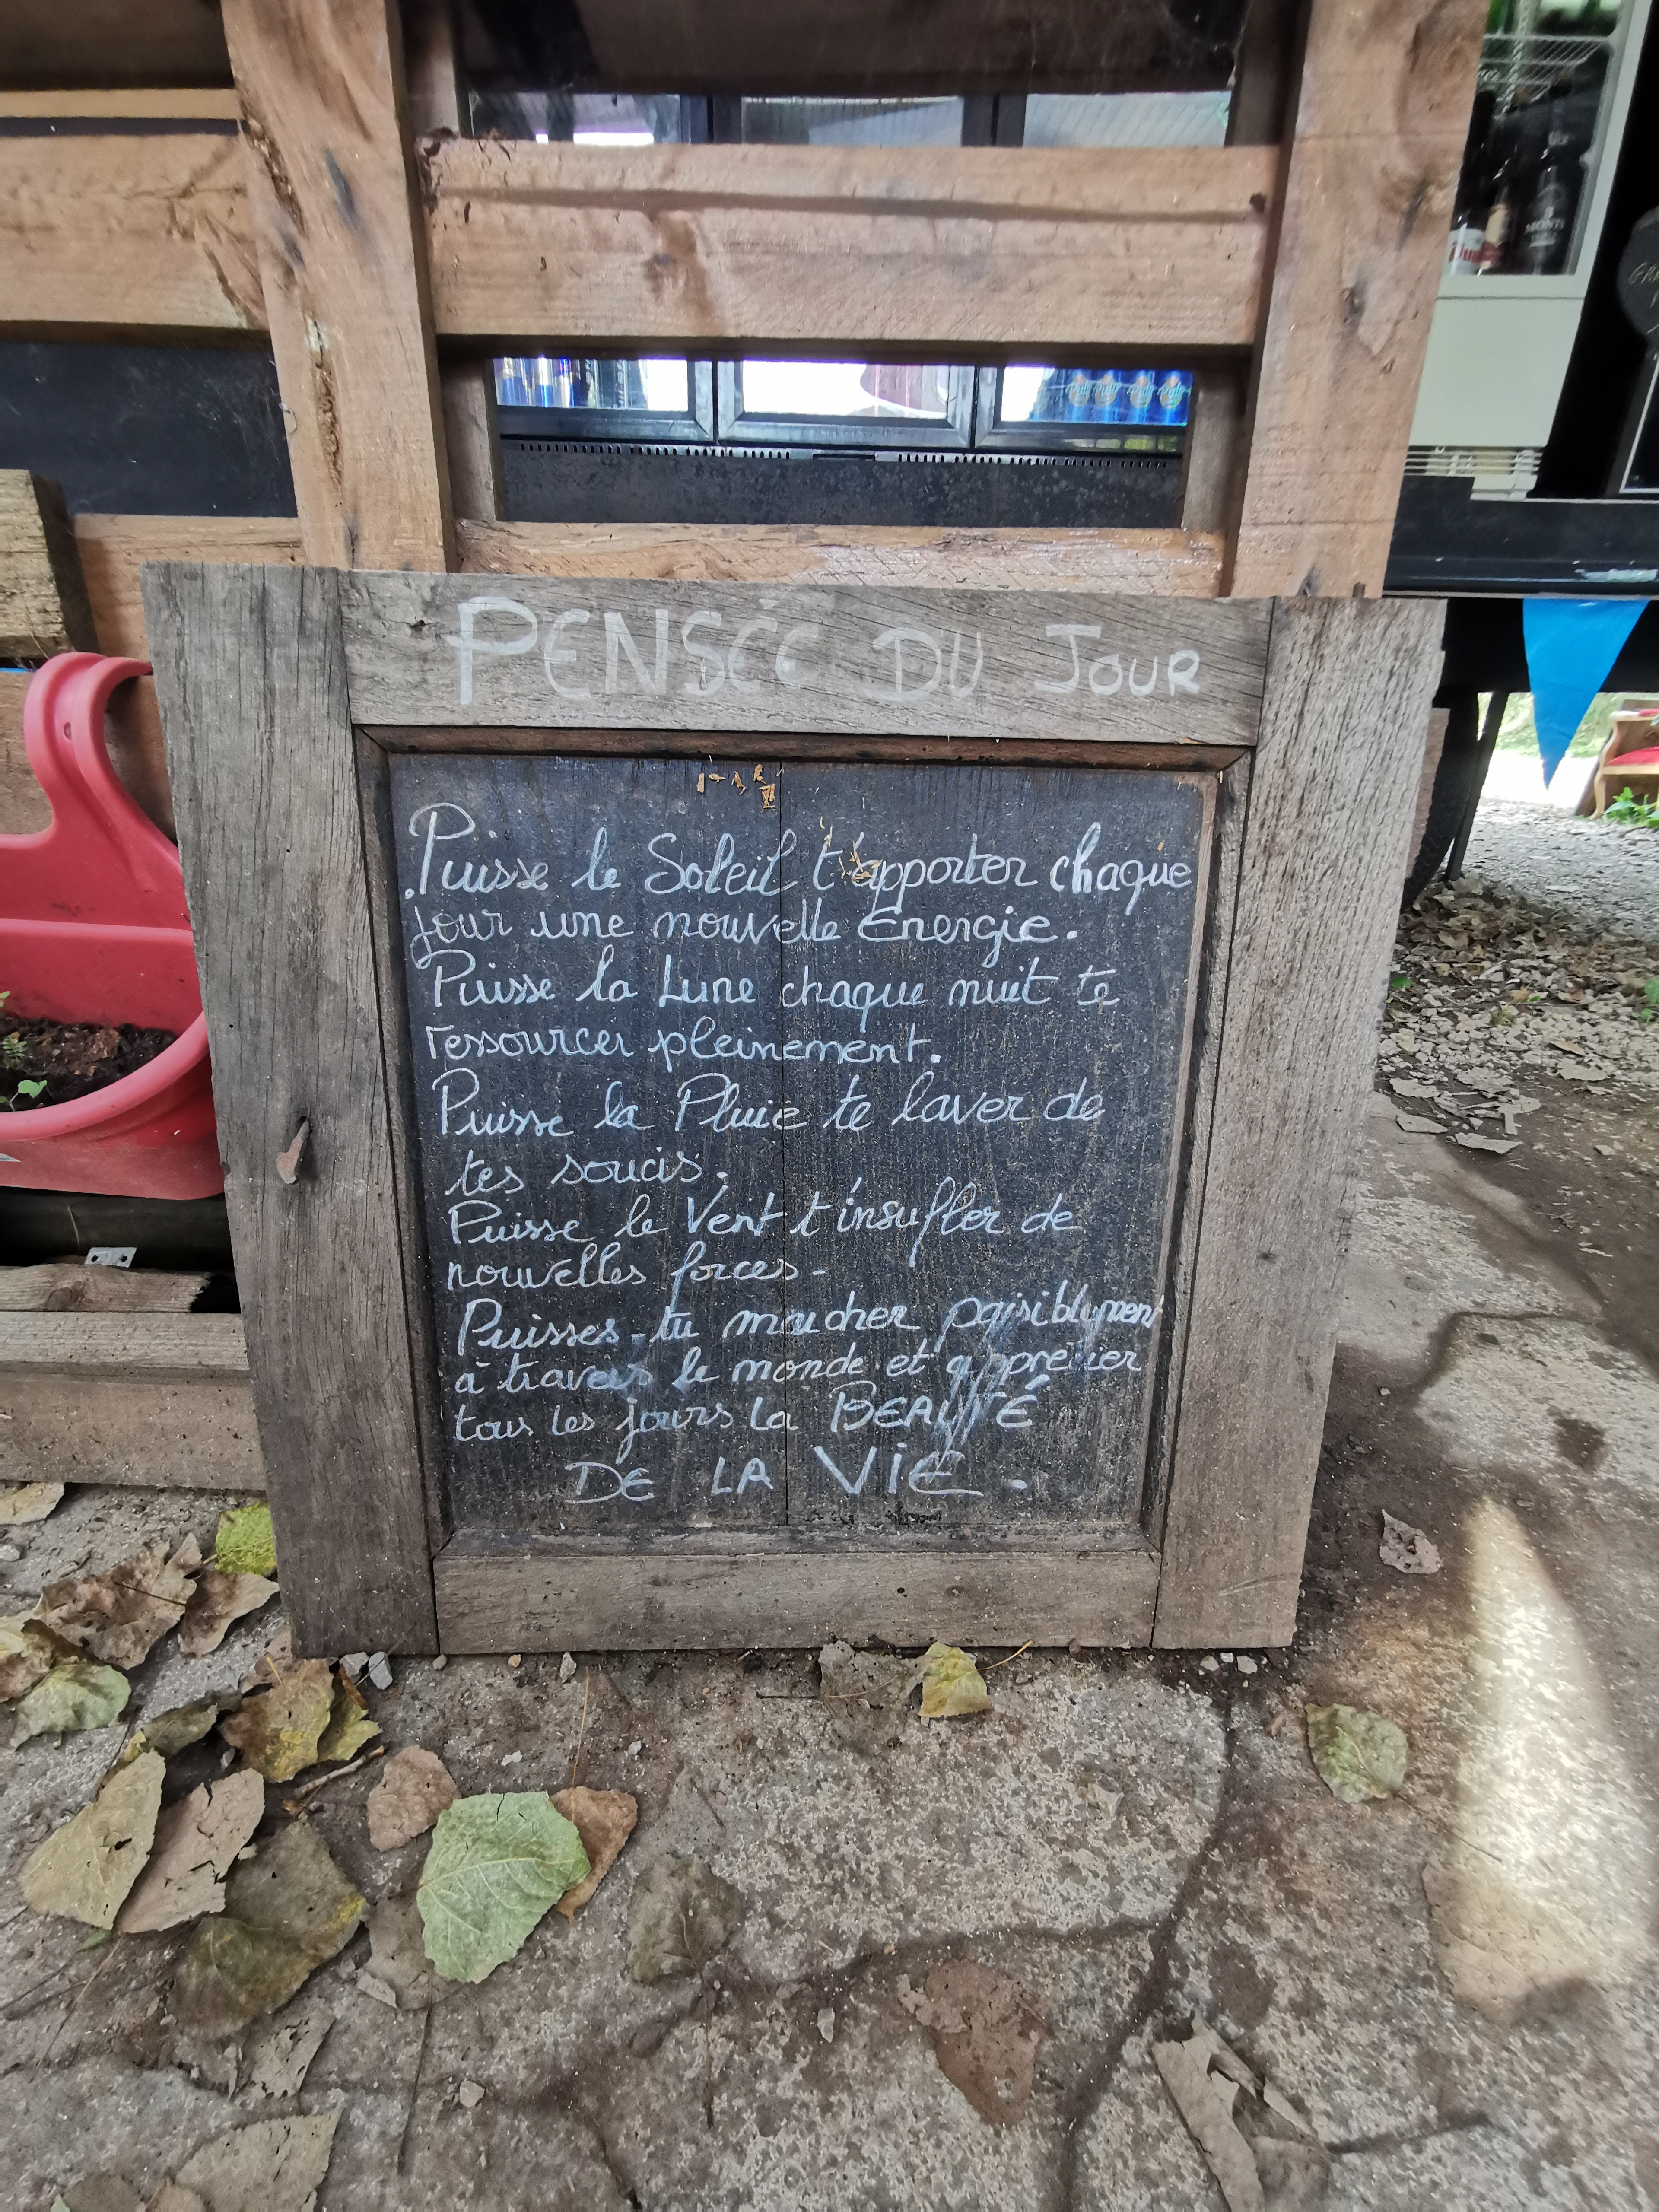 PENSÉE DU JOUR
Puisse le Soleil t'apporter chaque
jour une nouvelle Energie.
Puisse la Lune chaque nuit te
ressourcer pleinement.
Puisse la Pluie te laver de
tes soucis.
Puisse le Vent t'insufler de
nouvelles forces.
Puisses-tu marcher paisiblement
à travers le monde et apprécier
tous les jours la BEAUTÉ
DE LA VIE.
MONTS